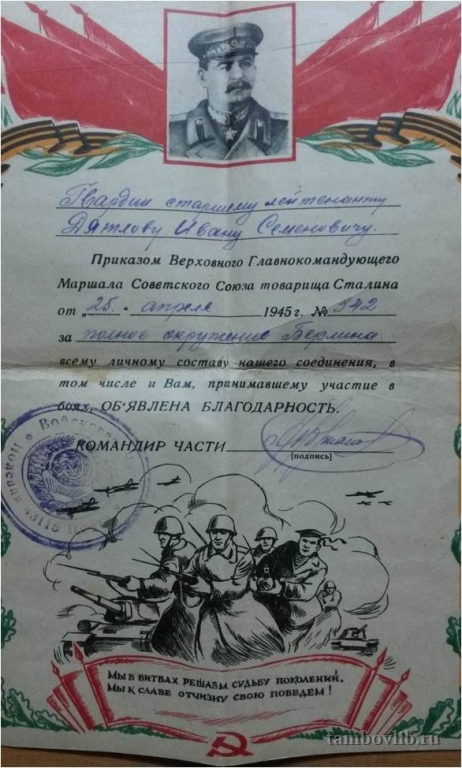 Гвардии старшему лейтенанту
Дятлову Ивану Семеновичу.
Приказом Верховного Главнокомандующего
Маршала Советского Союза товарища Сталина
от „25“ апреля 1945 г. № 342
за полное окружение Берлина
всему личному составу нашего соединения, в
том числе и Вам, принимавшему участие в
боях, ОБ'ЯВЛЕНА БЛАГОДАРНОСТЬ.
КОМАНДИР ЧАСТИ
(подпись)
Полевая Войсковая
МЫ В БИТВАХ РЕШАЕМ СУДЬБУ ПОКОЛЕНИЙ,
МЫ К СЛАВЕ ОТЧИЗНУ СВОЮ ПОВЕДЕМ!
tambovlib.ru